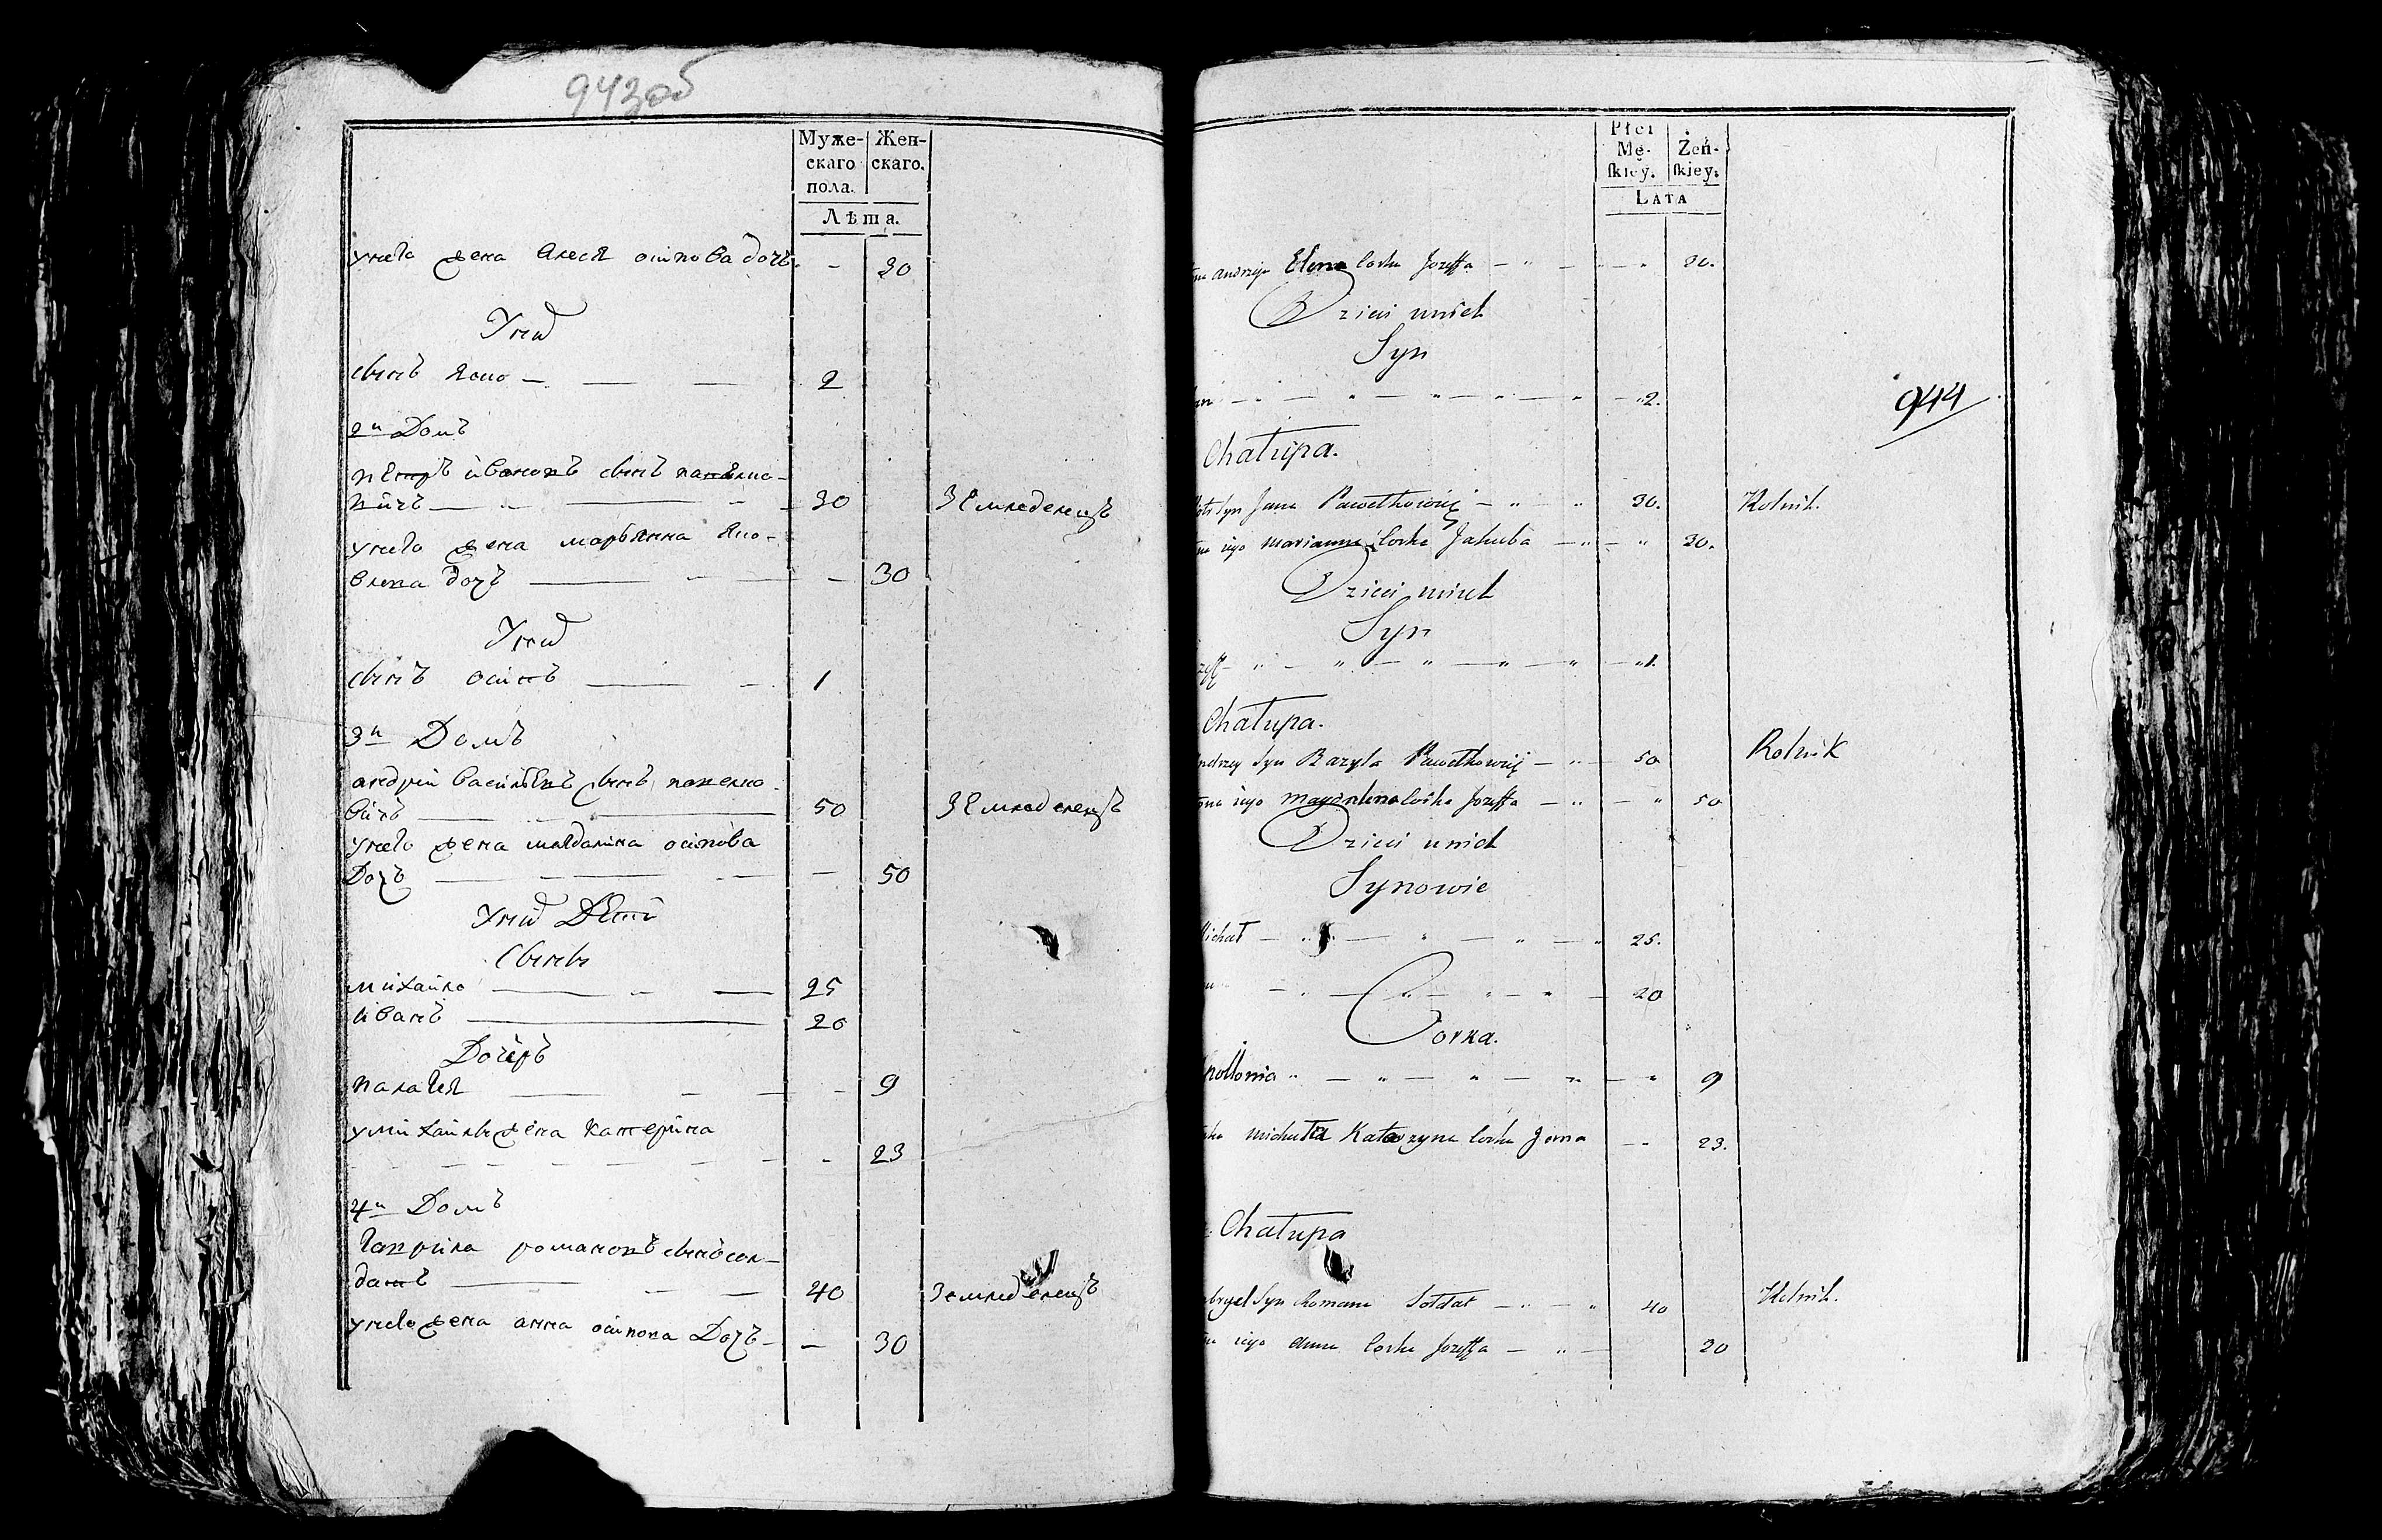 943об
Муже- Жен-
скаго скаго.
пола.
Лѣта.
унего жена Алеся осипова дочь - 30
Унихъ
сынъ Яско - 2
2й Домъ
пЕтръ ивановъ сынъ павелко-
вичъ 30 ЗЕмледелецъ
унего жена марьянна Яко-
влева дочъ - 30
Унихъ
сынъ осипъ 1
3й Домъ
андрiй васильЕвъ сынъ павелко-
вичъ 50 ЗЕмледелецъ
унего жена магдалина осипова
Дочъ - 50
Унихъ ДЕти
Сыны
михайло 25
иванъ 20
Дочеръ
палагея - 9
умихайлы жена катерина
- 23
4й Домъ
гаврила романовъ сынъ сол-
датъ 40 Земледелецъ
унего жена анна осипова Дочъ - 30
Płci
Mę- Żeń-
skiey. skiey.
LATA
Andrzeja Elena Corka Jozeffa 30.
Dzieci unich
Syn
2.
944
Chałupa.
Syn Jana Pawełkowicz 30. Rolnik.
iego Marianna Corka Jakuba 30.
Dzieci unich
Syn
1.
Chałupa.
Syn Bazyla Pawełkowicz 50 Rolnik
iego Magdalena Corka Jozeffa 50
Dzieci unich
Synowie
Michał 25.
20
Corka.
9
Michała Katarzyna Corka Jana 23.
Chałupa
Syn Romana Sołdat 40 Rolnik.
iego Anna Corka Jozeffa 30